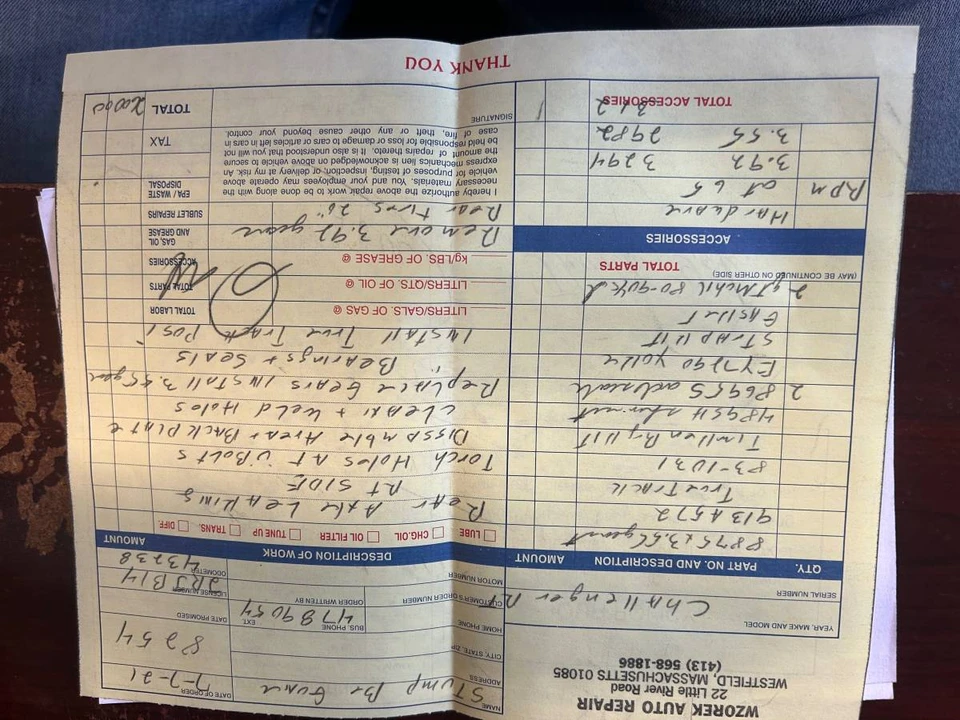 WZOREK AUTO REPAIR
22 Little River Road
WESTFIELD, MASSACHUSETTS 01085
(413) 568-1886
YEAR, MAKE AND MODEL
Challenger RT
SERIAL NUMBER
MOTOR NUMBER
NAME
Stump
ADDRESS
CITY, STATE, ZIP
HOME PHONE
BUS. PHONE
EXT.
4789054
CUSTOMER'S ORDER NUMBER
ORDER WRITTEN BY
DATE OF ORDER
7-7-21
8254
DATE PROMISED
LICENSE NUMBER
2RJ B14
ODOMETER
43238
QTY.
PART NO. AND DESCRIPTION
AMOUNT
8875 3.55 gears
913A572
TrueTrack
83-1031
Timken Brg KIT
2 86955
EY7290 yoke
STRAP KIT
Gasket
80-90
(MAY BE CONTINUED ON OTHER SIDE)
TOTAL PARTS
ACCESSORIES
Hardware
RPM at 65
3.92 3294
3.55 2982
312
TOTAL ACCESSORIES
DESCRIPTION OF WORK
AMOUNT
LUBE
CHG.OIL
OIL FILTER
TUNE UP
TRANS.
DIFF.
Rear Axle LEAKING
RT SIDE
TORCH HOLES AT U BOLTS
DISSAMBLE BACK PLATE
CLEAN + WELD HOLES
Replace Gears INSTALL 3.55 gear
Bearings + Seals
INSTALL True Track POSI
LITERS/GALS. OF GAS @
LITERS/QTS. OF OIL @
kg/LBS. OF GREASE @
TOTAL LABOR
TOTAL PARTS
ACCESSORIES
GAS, OIL AND GREASE
SUBLET REPAIRS
EPA / WASTE DISPOSAL
TAX
TOTAL
Remove 3.92 gears
Rear tires 26"
I hereby authorize the above repair work to be done along with the
necessary materials. You and your employees may operate above
vehicle for purposes of testing, inspection, or delivery at my risk. An
express mechanics lien is acknowledged on above vehicle to secure
the amount of repairs thereto. It is also understood that you will not
be held responsible for loss or damage to cars or articles left in cars in
case of fire, theft or any other cause beyond your control.
SIGNATURE
THANK YOU